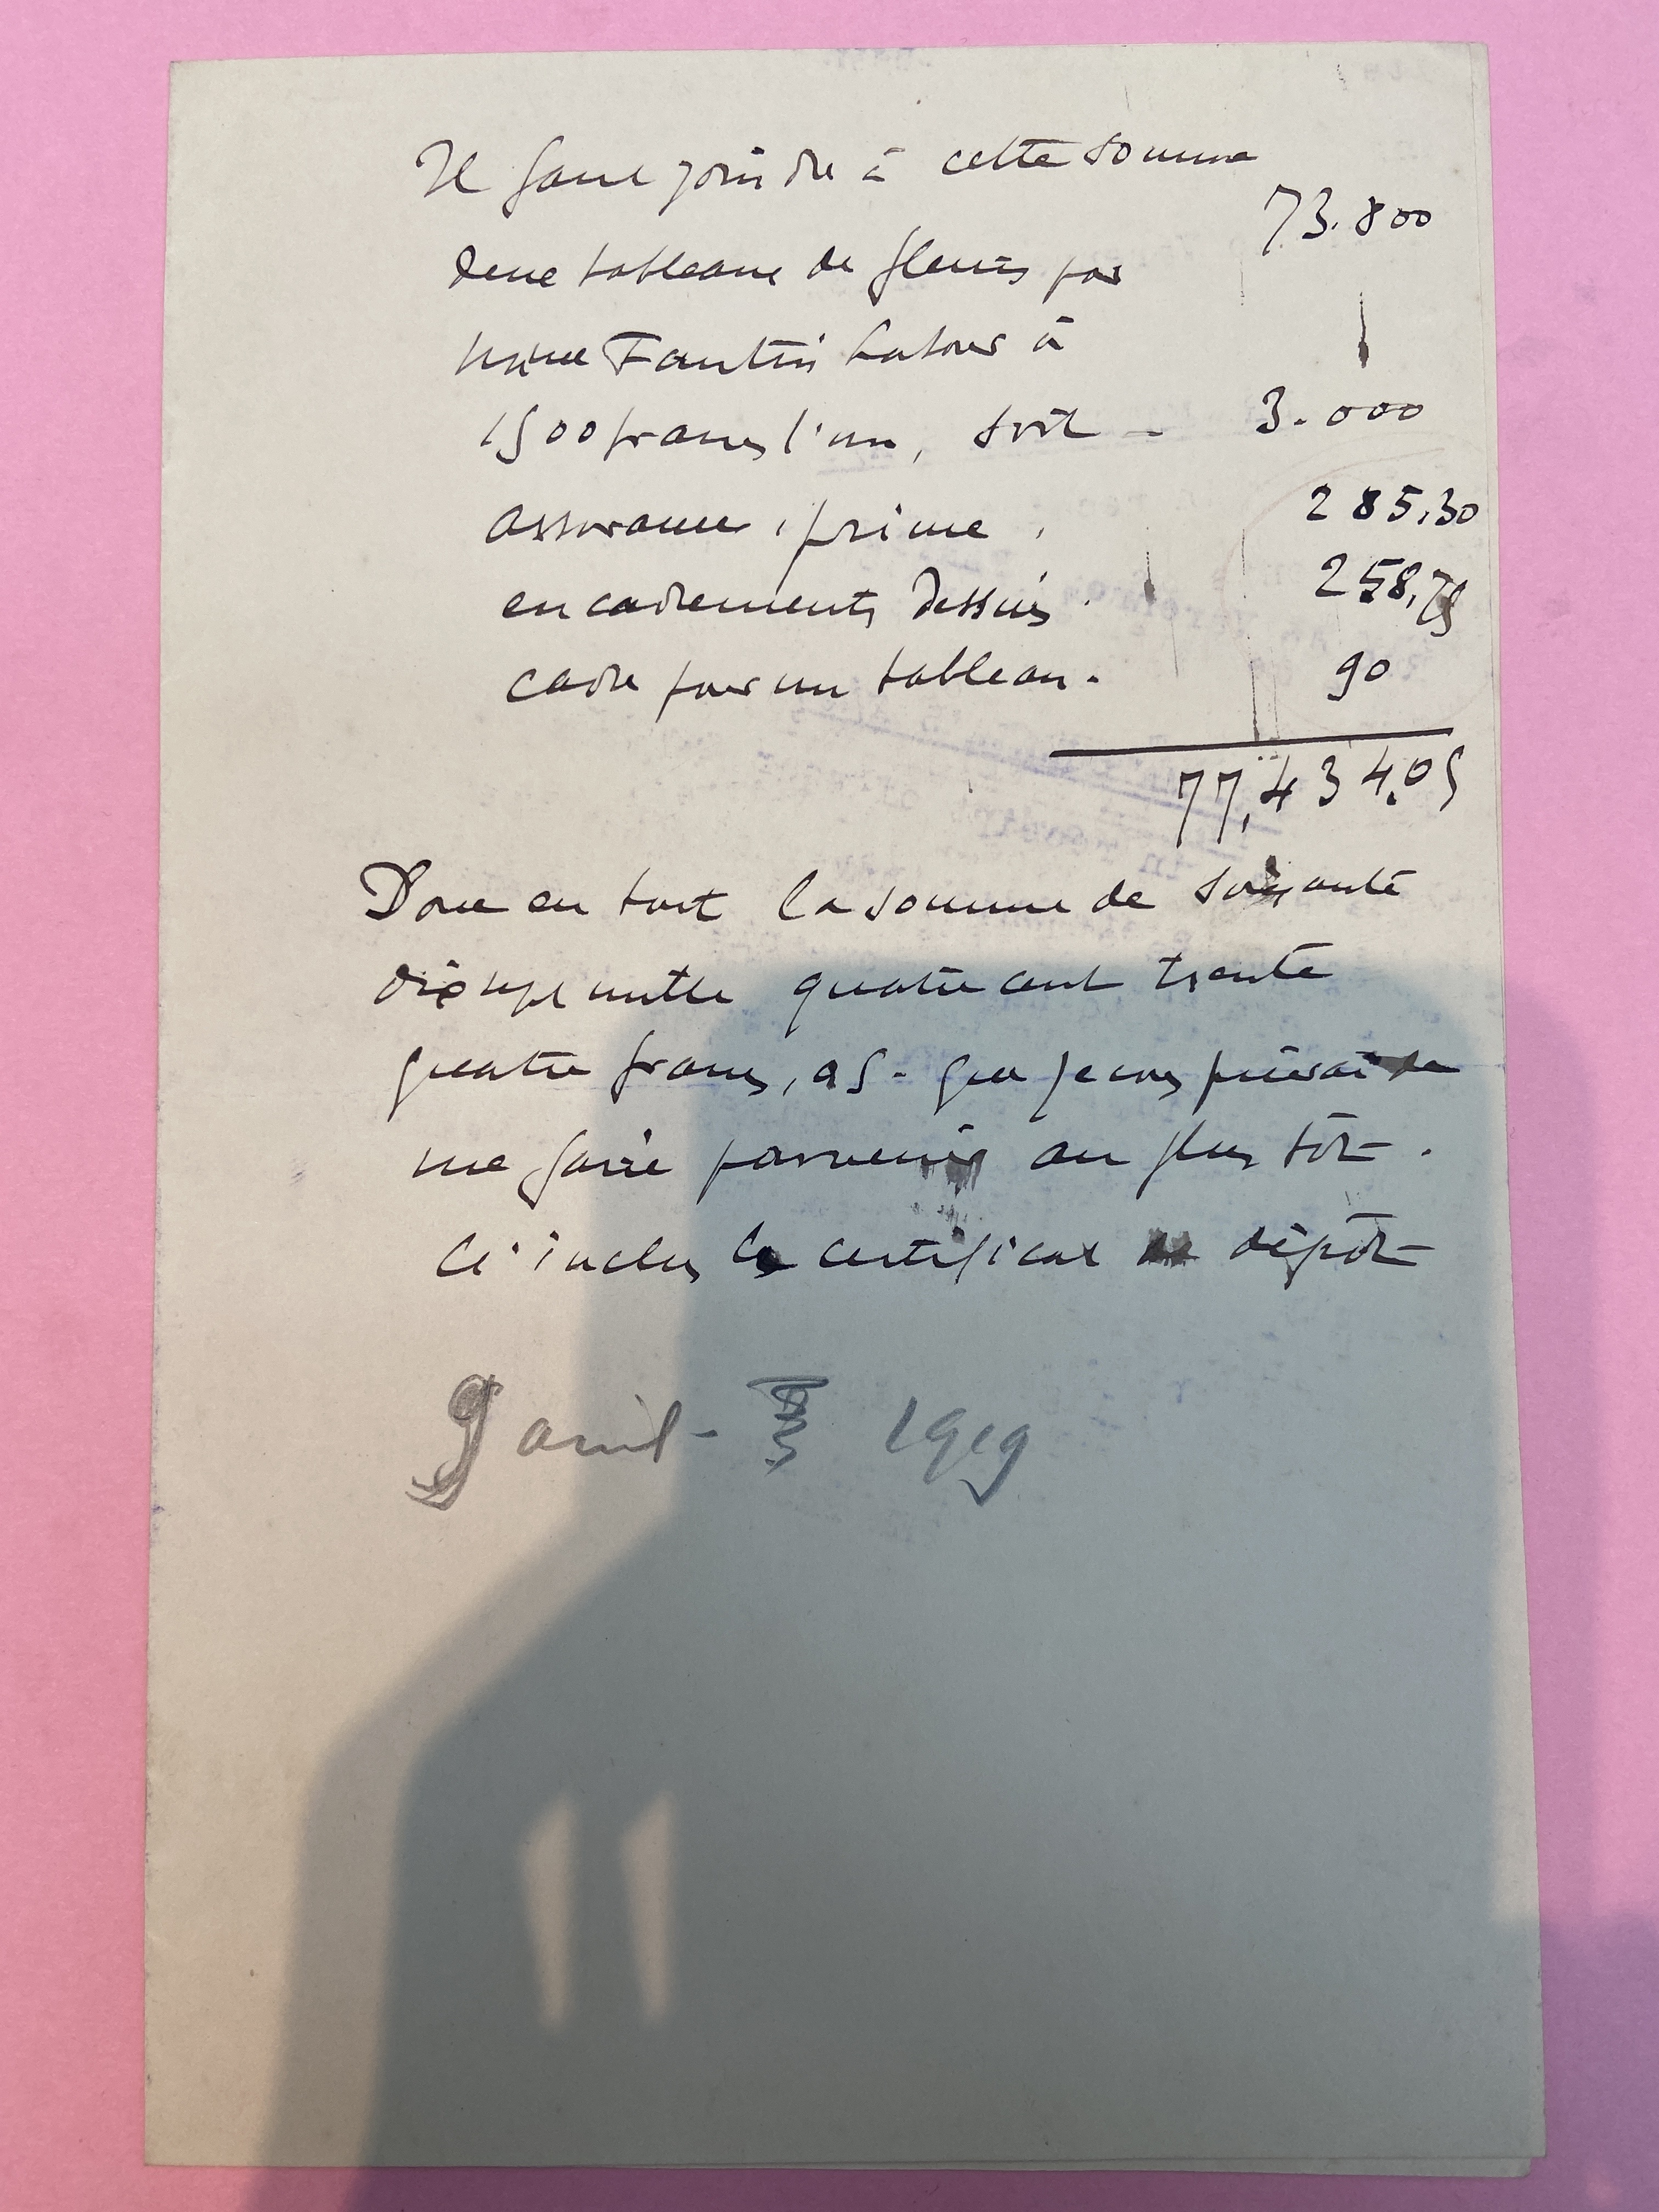 Il faut joindre à cette somme
73.800
deux tableaux de fleurs par
Mme Fantin Latour à
1500 francs l'un, soit - 3.000
assurance, prime. 285,30
encadrements dessins. 258,75
cadre pour un tableau. 90
77,434.05
Donc en tout la somme de soixante
dix sept mille quatre cent trente
quatre francs, 05 - que je vous prierai de
me faire parvenir au plus tôt.
Ci inclus le certificat de dépôt
9 avril - 1919